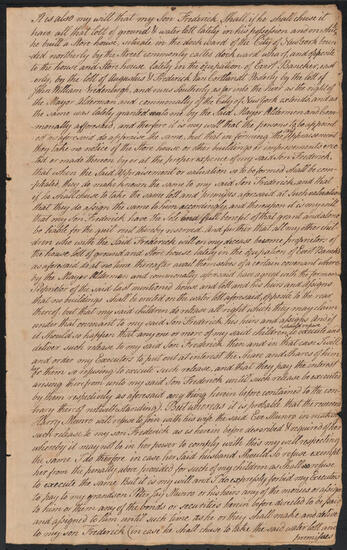 It is also my will that my Son Frederick Shall, if he shall chuse it
have all that lott of ground & water lott lately in his possession and on which
he built a Store house, situate in the dock ward of the City of New York boun
ded northerly by the Street commonly called dock wharf, and opposite
to the house and Store house, lately in the occupation of Evert Bancker, east
erly, by the lott of Augustus & Frederick Van Cortlandt, Westerly by the lott of
John William Vredenburgh, and runs Southerly as far into the River as the right of
the Mayor Alderman and commonalty of the City of New York extends, and as
the same was lately granted to me by the Said Mayor Aldermen and Com
monalty aforesaid, and therefore it is my will that the persons to be appoint
ed as aforesaid do appraise the same, but that in forming the appraisement
they take no notice of the Store house or other buildings or improvements erec
ted or made thereon by or at the proper expence of my said son Frederick,
that when the Said appraisement or valuation so to be formed shall be com
pleated, they do make known the same to my said Son Frederick, and that
if he shall chuse to take the water lott and premises aforesaid at such valuation
that they do assign the same to him accordingly, and thereupon it is my will
that my son Frederick have the sole and full benefit of that grant and alone
be liable for the quit rent thereby reserved. And further that all my other chil
dren who with the Said Frederick will on my decease become proprietors of
the house lott of ground and Store house lately in the occupation of Evert Bancker
as aforesaid do at no time thereafter avail themselves of a certain covenant where
by the Mayor Aldermen and commonalty aforesaid have agreed with the former
Proprietor of the said last mentioned house and lott and his heirs and assigns
that no buildings shall be erected on the water lott aforesaid, opposite to the rear
thereof, but that my said children do release all right which they may claim
under that covenant to my said son Frederick his heirs and assigns, and if
it should so happen that any one or more of my said children should refuse to execute and
deliver such release to my said Son Frederick then and in that case I will
and order my Executors to put out at interest the share and shares of him
or them so refusing to execute such release, and that they pay the interest
arising therefrom unto my said Son Frederick until such release be executed
by them respectively as aforesaid any thing herein before contained to the con
trary thereof notwithstanding. But whereas it is probable that the reverend
Harry Munro will refuse to join with his wife the said Eve Munro in making
such release to my son Frederick as is herein before described & required of her
whereby it may not be in her power to comply with this my will respecting
the same I do therefore in case her said husband Should So refuse exempt
her from the penalty above provided for such of my children as shall so refuse
to execute the same. But it is my will and I do expressly forbid my Executors
to pay to my grandson Peter Jay Munro or his heirs any of the monies or assign
to him or them any of the bonds or securities herein before directed to be paid
and assigned to him until such time as he or they shall make and deliver
to my son Frederick (in case he shall chuse to take the said water lott and
premises